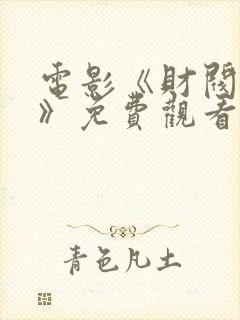 電影《財閥
》免費觀看
青色凡土